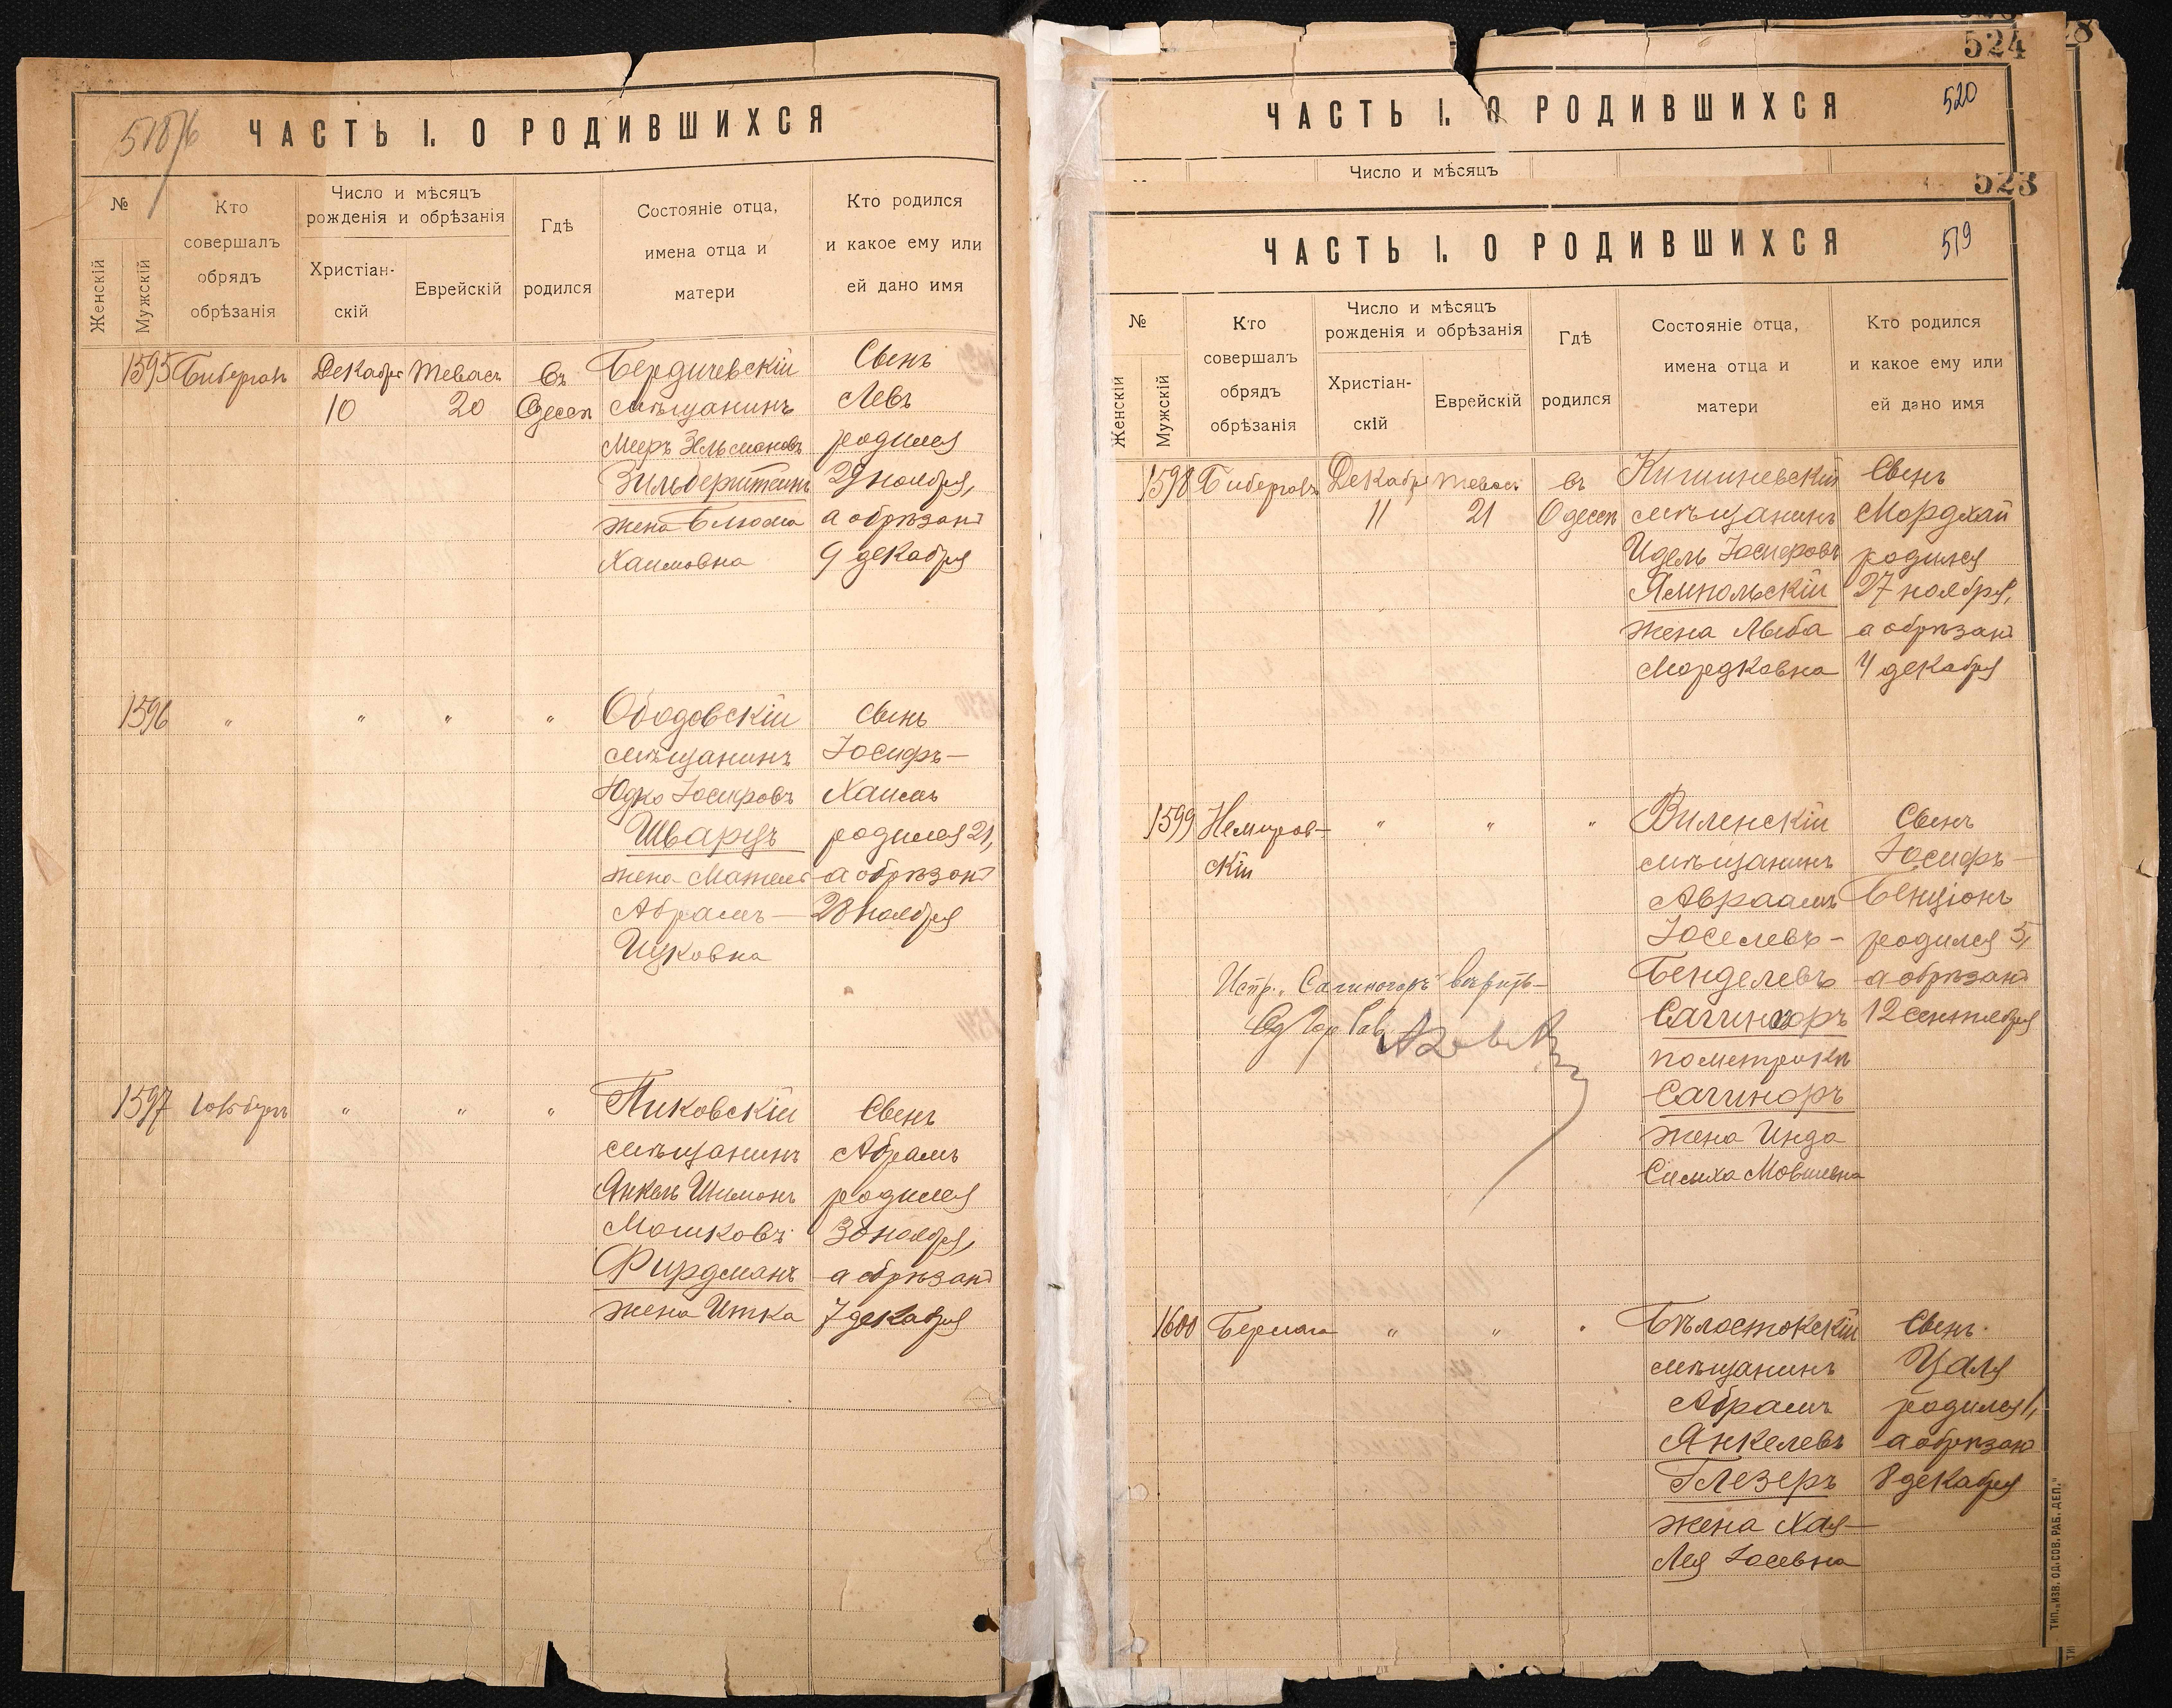 518/6
ЧАСТЬ I. О РОДИВШИХСЯ
№
Женскій
Мужскій
Кто
совершалъ
обрядъ
обрѣзанія
Число и мѣсяцъ
рожденія и обрѣзанія
Христіан-
скій
Еврейскій
Гдѣ
родился
Состояніе отца,
имена отца и
матери
Кто родился
и какое ему или
ей дано имя
1595
Бибергалъ
Декабря
10
Тевасъ
20
въ
Одессѣ
Бердичевскій
мѣщанинъ
Мееръ Зельмановъ
Зильберштейнъ
жена Блюма
Хаимовна
Сынъ
Левъ
родился
29 ноября,
а обрѣзанъ
9 декабря
1596
" " " "
Ободовскій
мѣщанинъ
Юдко Іосифовъ
Шварцъ
жена
Абрамъ-
Ицковна
Сынъ
Іосифъ-
Хаимъ
родился 21,
а обрѣзанъ
28 ноября
1597
" " "
Пиковскій
мѣщанинъ
Янкель Шимонъ
Мошковъ
Фирдманъ
жена Итка
Сынъ
Абрамъ
родился
30 ноября,
а обрѣзанъ
7 декабря
524
ЧАСТЬ I. О РОДИВШИХСЯ
520
Число и мѣсяцъ
523
ЧАСТЬ I. О РОДИВШИХСЯ
519
№
Женскій
Мужскій
Кто
совершалъ
обрядъ
обрѣзанія
Число и мѣсяцъ
рожденія и обрѣзанія
Христіан-
скій
Еврейскій
Гдѣ
родился
Состояніе отца,
имена отца и
матери
Кто родился
и какое ему или
ей дано имя
1598
Бибергалъ
Декабря
11
Тевасъ
21
въ
Одессѣ
Кишиневскій
мѣщанинъ
Идель Іосифовъ
Ямпольскій
жена Лыба
Мордковна
Сынъ
Мордхай
родился
27 ноября,
а обрѣзанъ
4 декабря
1599
Немиров-
скій
" " "
Виленскій
мѣщанинъ
Авраамъ
Іоселевъ-
Бенделевъ
Сагиноръ
по метрикѣ
Сагиноръ
жена Инда
Симха Мовшевна
Сынъ
Іосифъ-
Бенціонъ
родился 5,
а обрѣзанъ
12 сентября
Испр. „Сагиноръ" вѣрить
Од Гор Рав
1600
Бермана
" " "
Бѣлостокскій
мѣщанинъ
Абрамъ
Янкелевъ
Глезеръ
жена Хая-
Лея Іосевна
Сынъ
Цаля
родился 1,
а обрѣзанъ
8 декабря
ТИП. „ИЗВ. ОД. СОВ. РАБ. ДЕП."